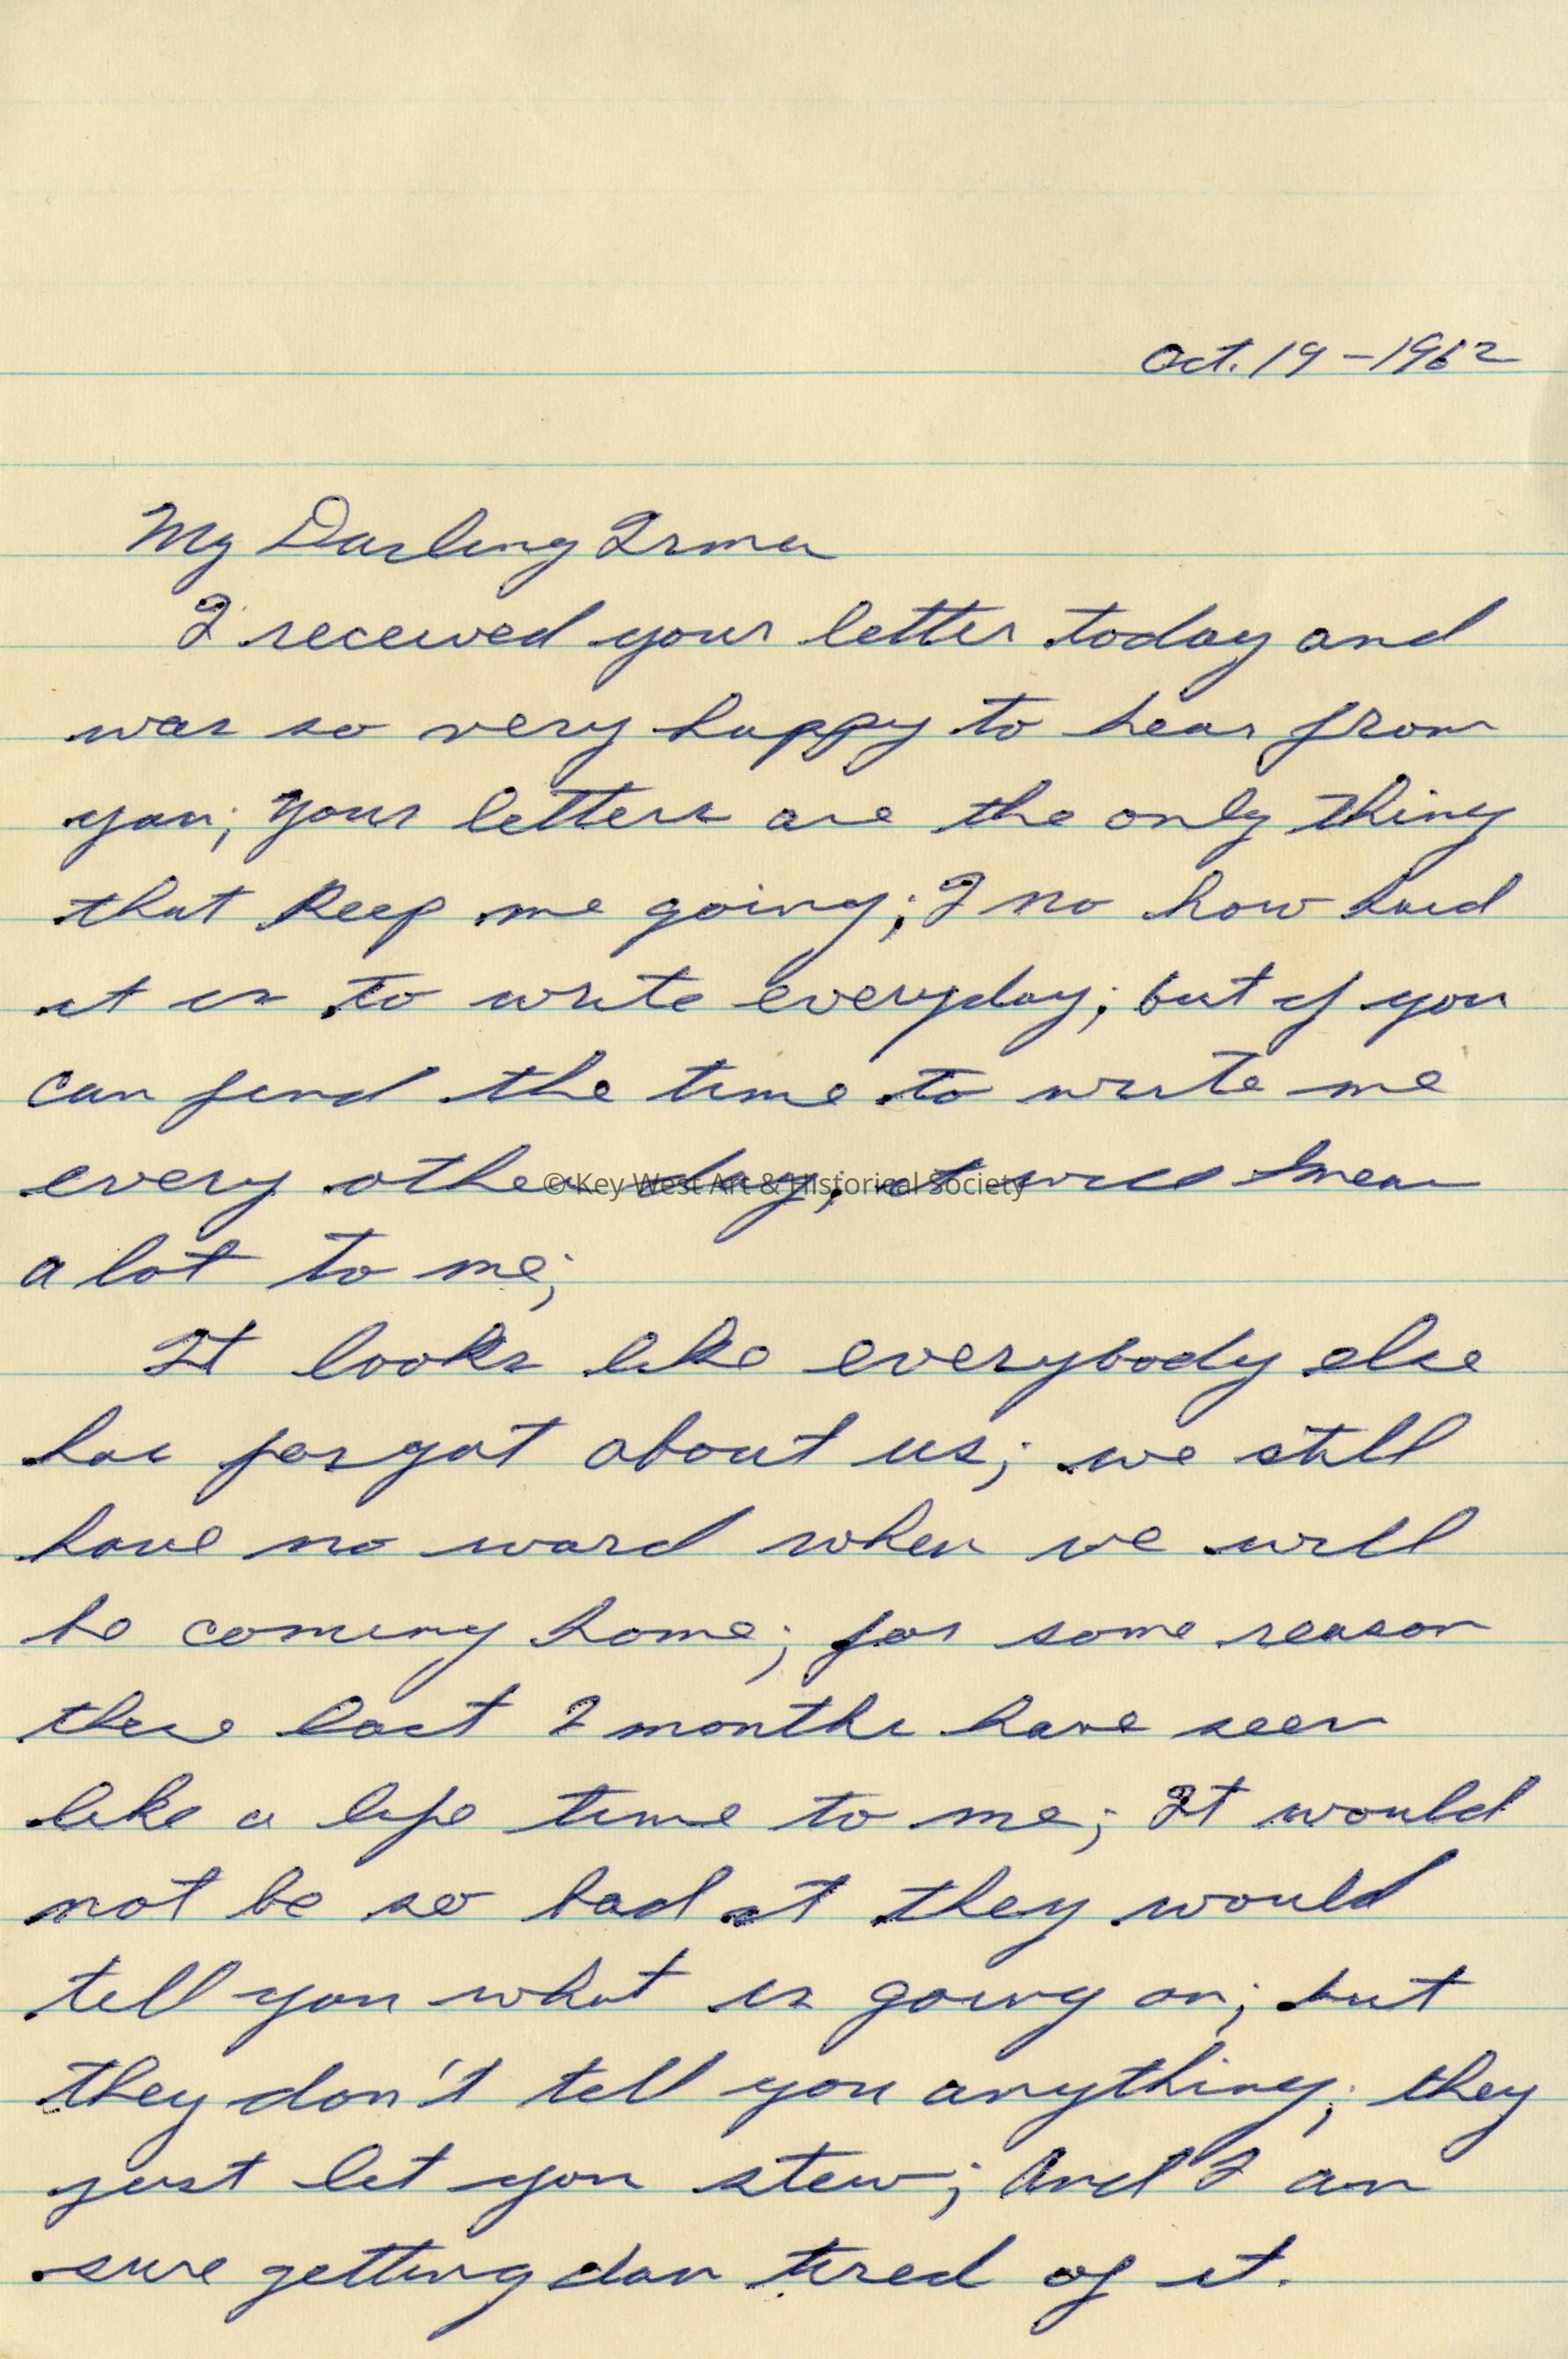 Oct. 19 - 1962
My Darling Irma
I received your letter today and
was so very happy to hear from
you; your letters are the only thing
that keep me going; I no how hard
it is to write everyday; but if you
can find the time to write me
every other day; it will mean
a lot to me;
It looks like everybody else
has forgot about us; we still
have no word when we will
be coming home; for some reason
these last 2 months have seen
like a life time to me; It would
not be so bad it they would
tell you what is going on; but
they don't tell you anything; they
just let you stew; And I am
sure getting dam tired of it.
© Key West Art & Historical Society